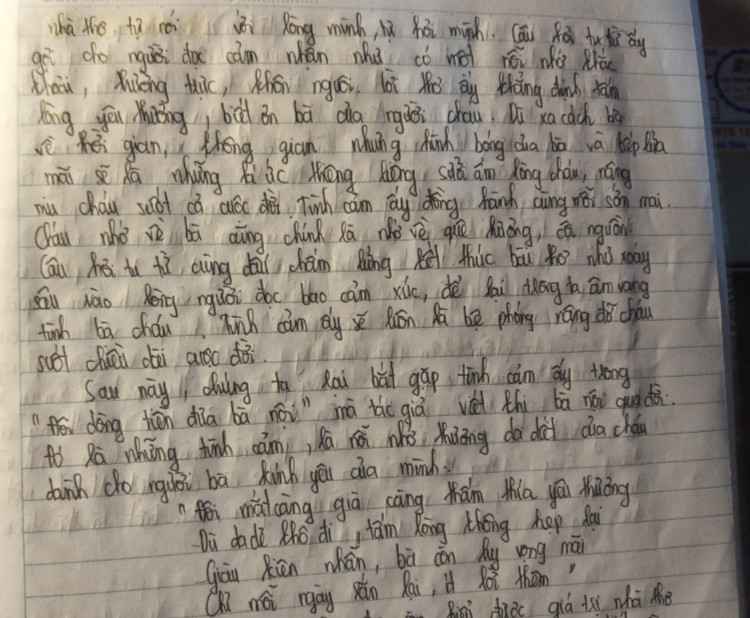 nhà thơ, tự nói với lòng mình, tự hỏi mình. Câu hỏi tu từ ấy
gợi cho người đọc cảm nhận như có một nỗi nhớ khắc
khoải, thường trực, khôn nguôi. lời thơ ấy khẳng định tấm
lòng yêu thương, biết ơn bà của người cháu. Dù xa cách bà
về thời gian, không gian nhưng hình bóng của bà và bếp lửa
mãi sẽ là những kí ức thiêng liêng, sưởi ấm lòng cháu, nâng
niu cháu suốt cả cuộc đời. Tình cảm ấy đồng hành cùng mỗi sớm mai.
Cháu nhớ về bà cũng chính là nhớ về quê hương, cội nguồn.
Câu hỏi tu từ cùng dấu chấm lửng kết thúc bài thơ như xoáy
sâu vào lòng người đọc bao cảm xúc, để lại trong ta âm vang
tình bà cháu. Tình cảm ấy sẽ luôn là bệ phóng nâng đỡ cháu
suốt chiều dài cuộc đời.
Sau này, chúng ta lại bắt gặp tình cảm ấy trong
" đồng tiền của bà nội" mà tác giả viết khi bà nội qua đời.
Đó là những tình cảm, là nỗi nhớ thương da diết của cháu
dành cho người bà kính yêu của mình.
" mắt càng già càng thấm thía yêu thương
Dù da dẻ khô đi, tấm lòng không hẹp lại
Giàu kiên nhẫn, bà còn hy vọng mãi
Chỉ mỗi ngày rắn lại, ít lời thêm"
được giá trị nhà thơ